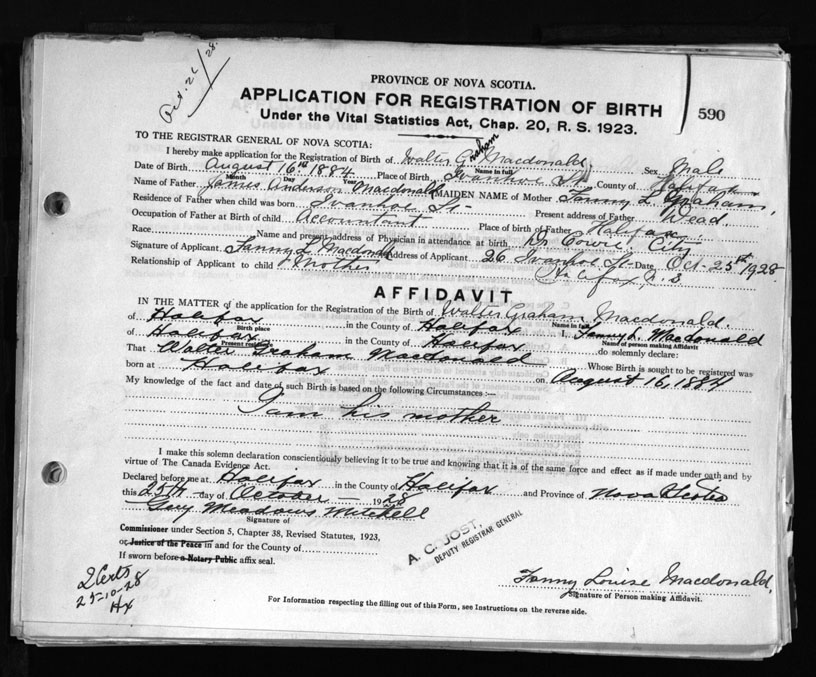 Oct. 26/28.
PROVINCE OF NOVA SCOTIA.
APPLICATION FOR REGISTRATION OF BIRTH
590
Under the Vital Statistics Act, Chap. 20, R. S. 1923.
TO THE REGISTRAR GENERAL OF NOVA SCOTIA:
I hereby make application for the Registration of Birth of Walter Graham Macdonald. Sex Male
Name in full
Date of Birth August 16th 1884 Place of Birth Ivanhoe St County of Halifax
Month Day Year
Name of Father James Anderson Macdonald MAIDEN NAME of Mother Fanny L. Graham,
Residence of Father when child was born Ivanhoe St- Present address of Father Dead.
Occupation of Father at Birth of child Accountant Place of birth of Father Halifax
Race Name and present address of Physician in attendance at birth Dr Cowie City
Signature of Applicant Fanny L Macdonald Address of Applicant 26 Ivanhoe St- Date Oct- 25th 1928
Relationship of Applicant to child Mother Halifax N.S
AFFIDAVIT
IN THE MATTER of the application for the Registration of the Birth of Walter Graham Macdonald.
Name in full
of Halifax in the County of Halifax I, Fanny L. Macdonald
Birth place Name of person making Affidavit
of Halifax in the County of Halifax do solemnly declare:
Present residence
That Walter Graham Macdonald Whose Birth is sought to be registered was
born at Halifax on August 16, 1884
My knowledge of the fact and date of such Birth is based on the following Circumstances :—
I am his mother
I make this solemn declaration conscientiously believing it to be true and knowing that it is of the same force and effect as if made under oath and by
virtue of The Canada Evidence Act.
Declared before me at Halifax in the County of Halifax and Province of Nova Scotia
this 25th day of October 1928
Guy Meadows Mitchell
Signature of
Commissioner under Section 5, Chapter 38, Revised Statutes, 1923,
or Justice of the Peace in and for the County of
If sworn before a Notary Public affix seal.
DEPUTY REGISTRAR GENERAL
2 Certs
25-10-28
Hx
Fanny Louise Macdonald,
Signature of Person making Affidavit.
For Information respecting the filling out of this Form, see Instructions on the reverse side.